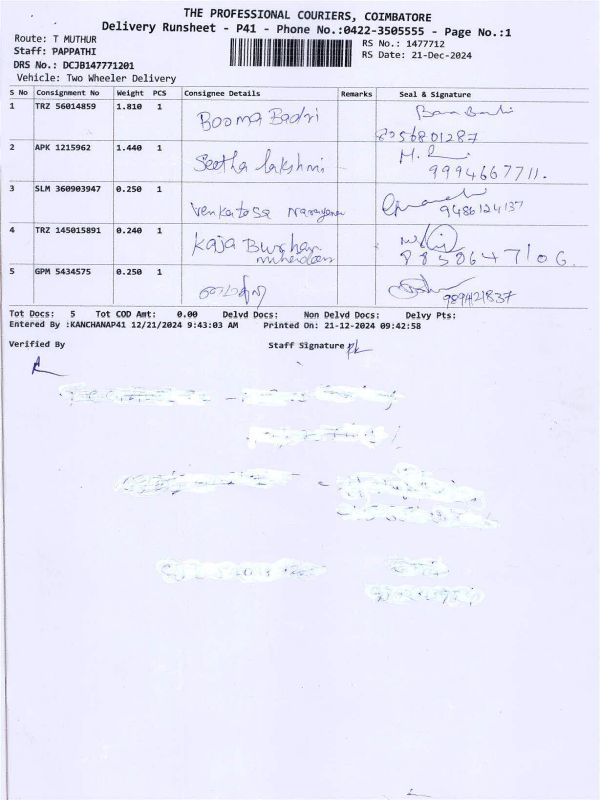 THE PROFESSIONAL COURIERS, COIMBATORE
Delivery Runsheet - P41 - Phone No.:0422-3505555 - Page No.:1
Route: T MUTHUR
Staff: PAPPATHI
RS No.: 1477712
RS Date: 21-Dec-2024
DRS No.: DCJB147771201
Vehicle: Two Wheeler Delivery
S No Consignment No Weight PCS Consignee Details Remarks Seal & Signature
1 TRZ 56014859 1.810 1 Booma Badri
8256801287
2 APK 1215962 1.440 1 Seetha lakshmi
9994667711.
3 SLM 360903947 0.250 1 Venkatesa Narayanan 9486124137
4 TRZ 145015891 0.240 1 Kaja Burhan
8858647106
5 GPM 5434575 0.250 1
Tot Docs: 5 Tot COD Amt: 0.00 Delvd Docs: Non Delvd Docs: Delvy Pts:
Entered By :KANCHANAP41 12/21/2024 9:43:03 AM Printed On: 21-12-2024 09:42:58
Verified By Staff Signature